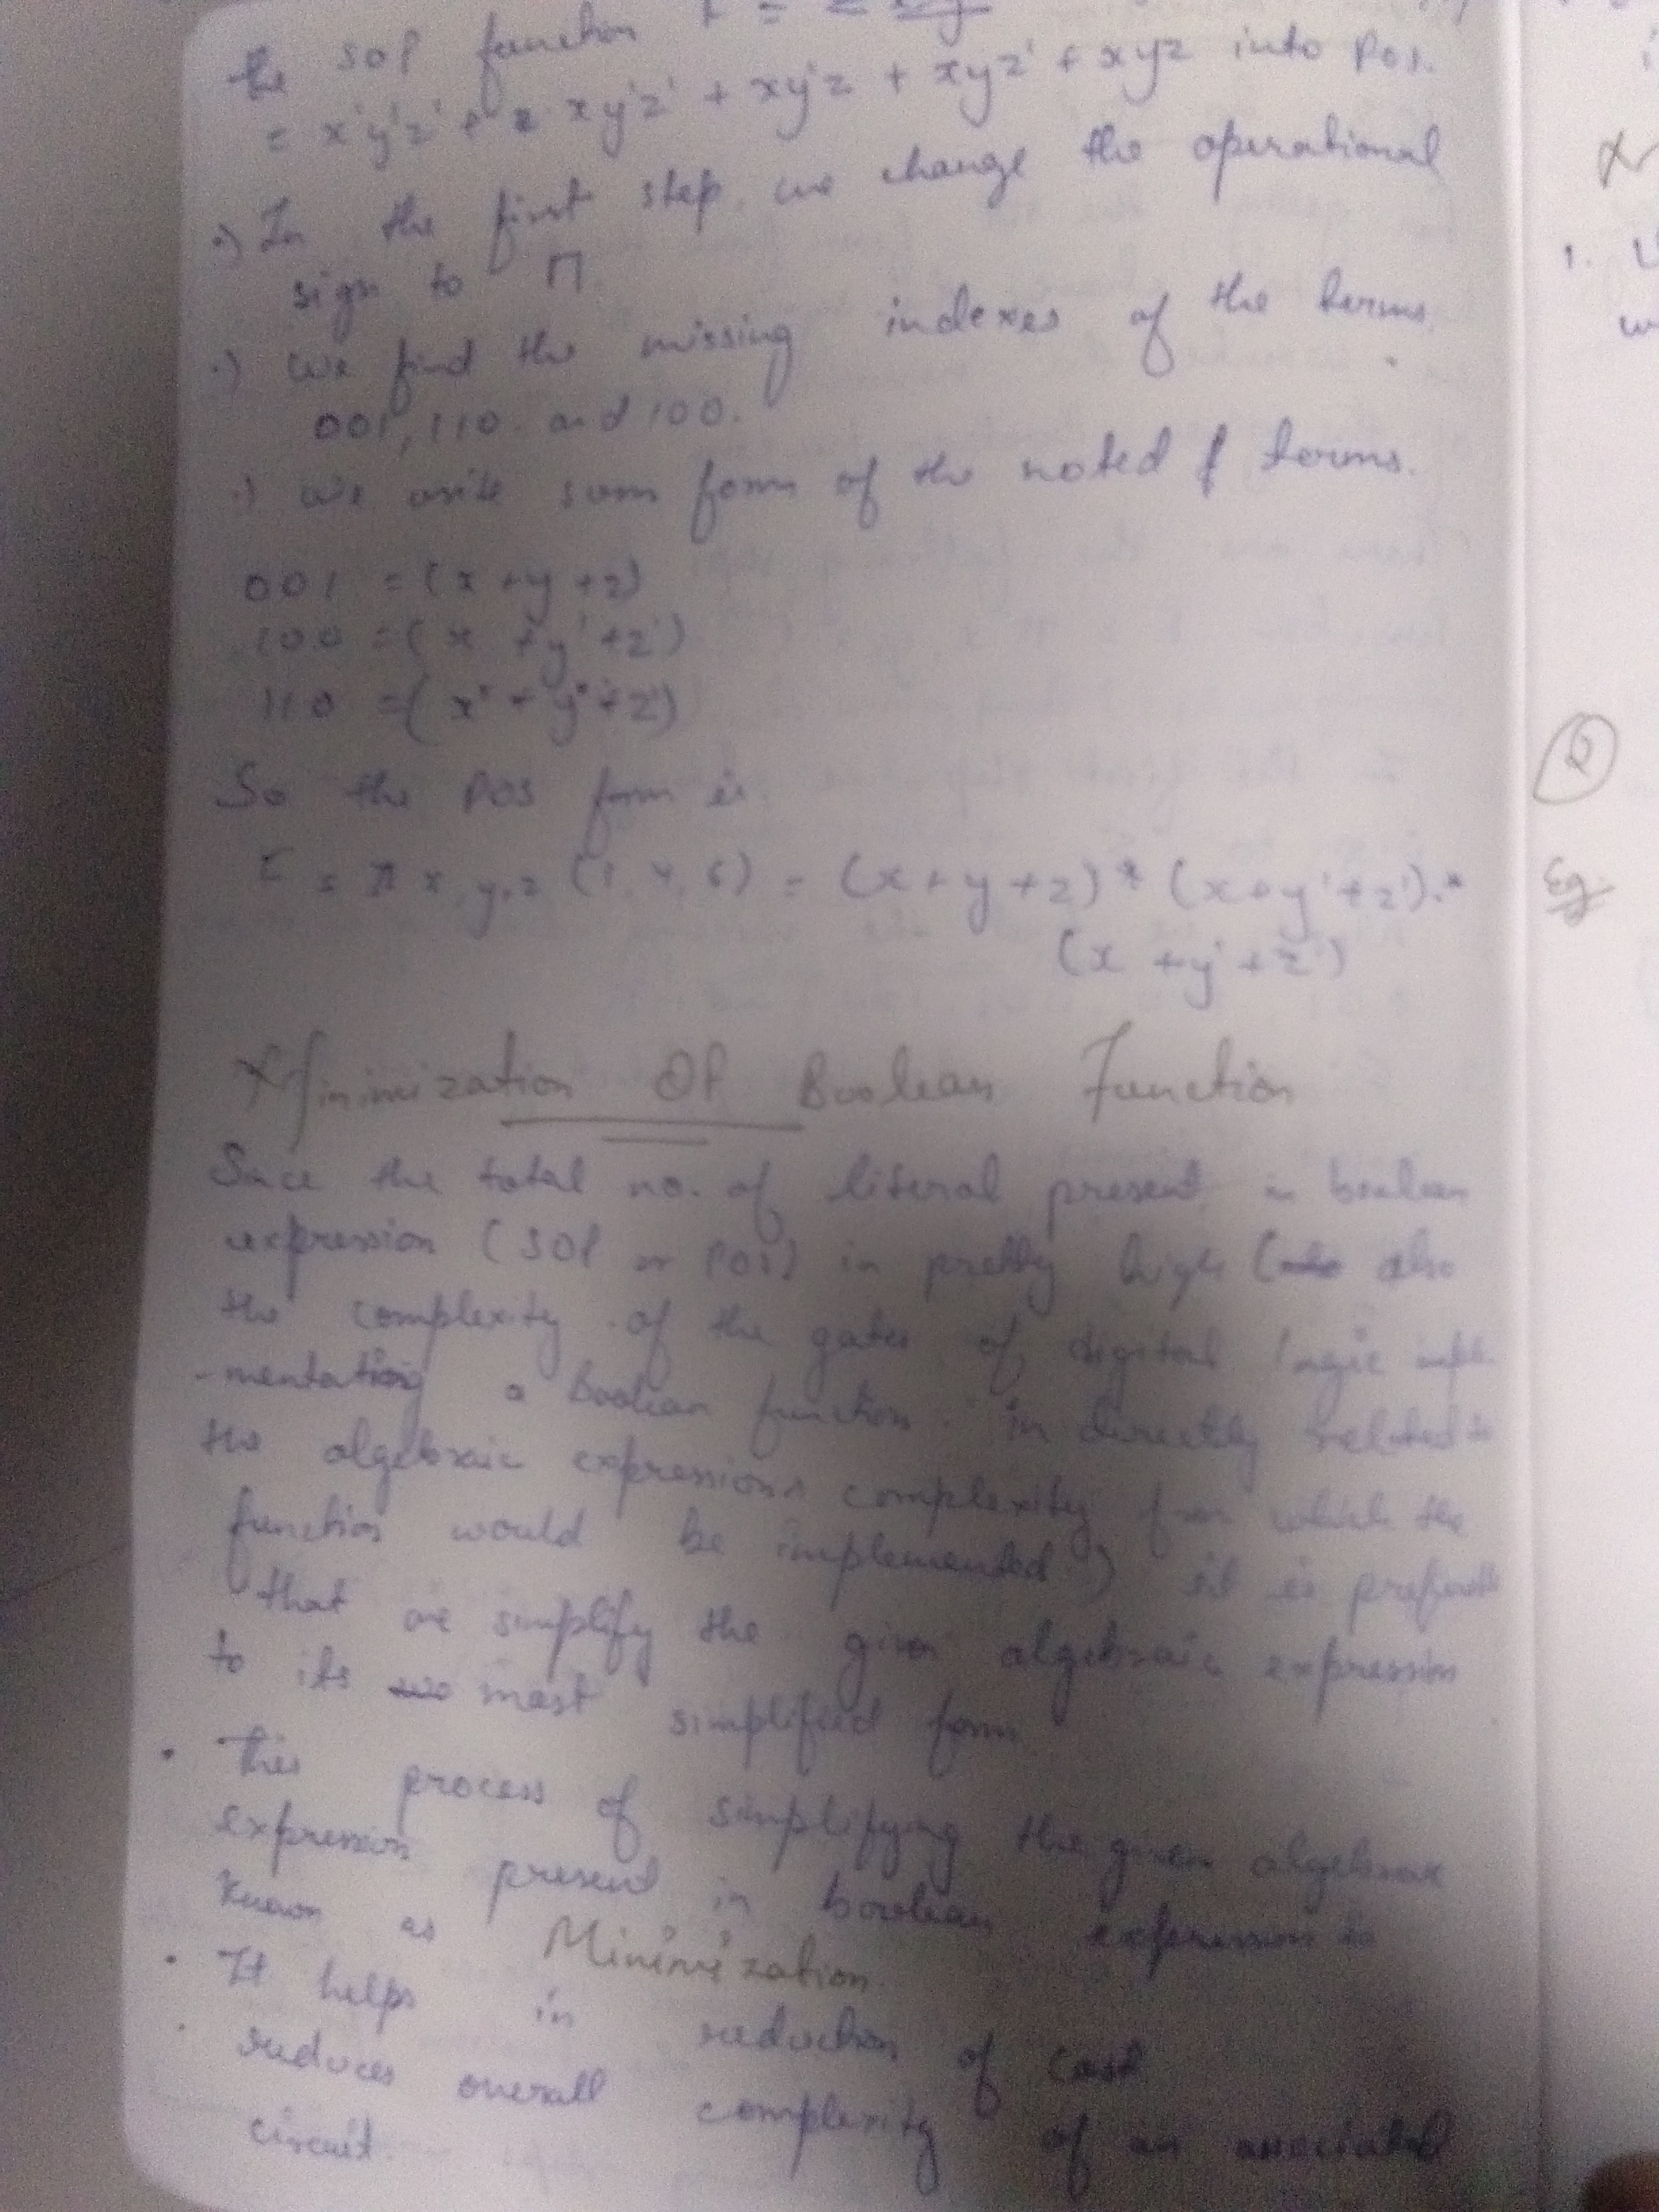 the SOP function F =
= x'y'z' + z xy'z' + xy'z + xyz' + xyz into POS.
•) In the first step we change the operational
sign to Π
•) We find the missing indexes of the terms,
001, 110 and 100.
•) we write sum form of the noted f terms.
001 = (x + y + z)
100 = (x + y' + z')
110 = (x' + y' + z')
So the POS form is
E = π x, y, z (1, 4, 6) = (x + y + z) * (x + y' + z') . *
(x + y' + z')
Minimization Of Boolean Function
Since the total no. of literal present in boolean
expression (SOP or POS) in pretty high ( also
the complexity of the gates of digital logic imple
-mentationg a Boolean function in directly related to
the algebraic expressions complexity from which the
function would be implemented) it is prefered
that we simplify the given algebraic expression
to its most simplified form
• This process of simplifying the given algebraic
expression present in boolean expression is
known as Minimization
• It helps in reduction of cost
• reduces overall complexity of an associated
circuit
1.
Q
Eg.